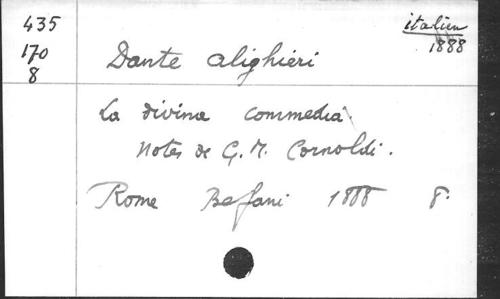 435
170
8
italien
1888
Dante Alighieri
La divina commedia
Notes de G. M. Cornoldi.
Rome Befani 1888 8°